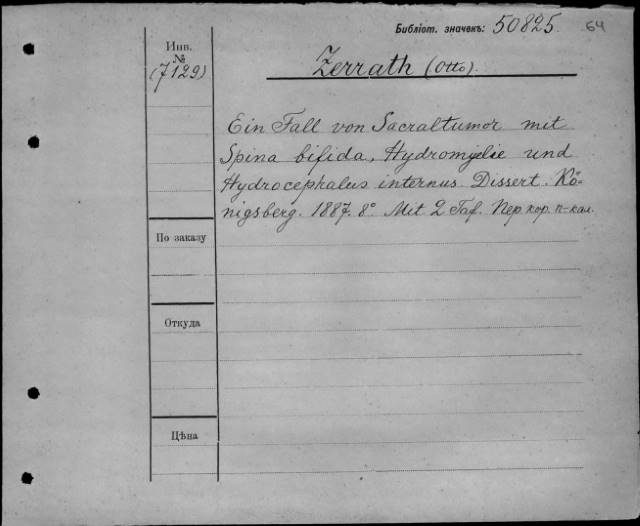 Библіот. значекъ: 50825. 64
Инв.
№
(7129)
Zerrath (Otto).
Ein Fall von Sacraltumor mit
Spina bifida, Hydromyelie und
Hydrocephalus internus Dissert. Kö-
nigsberg. 1887. 8° Mit 2 Taf. Пер. кор. п-кал.
По заказу
Откуда
Цѣна